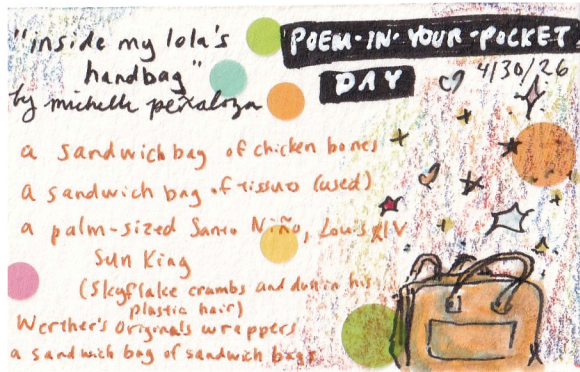 "inside my lola's
handbag"
by michelle peñaloza
POEM-IN-YOUR-POCKET
DAY
4/30/26
a sandwich bag of chicken bones
a sandwich bag of tissues (used)
a palm-sized Santo Niño, Louis XIV
Sun King
(Skyflake crumbs and dust in his
plastic hair)
Werther's Originals wrappers
a sandwich bag of sandwich bags